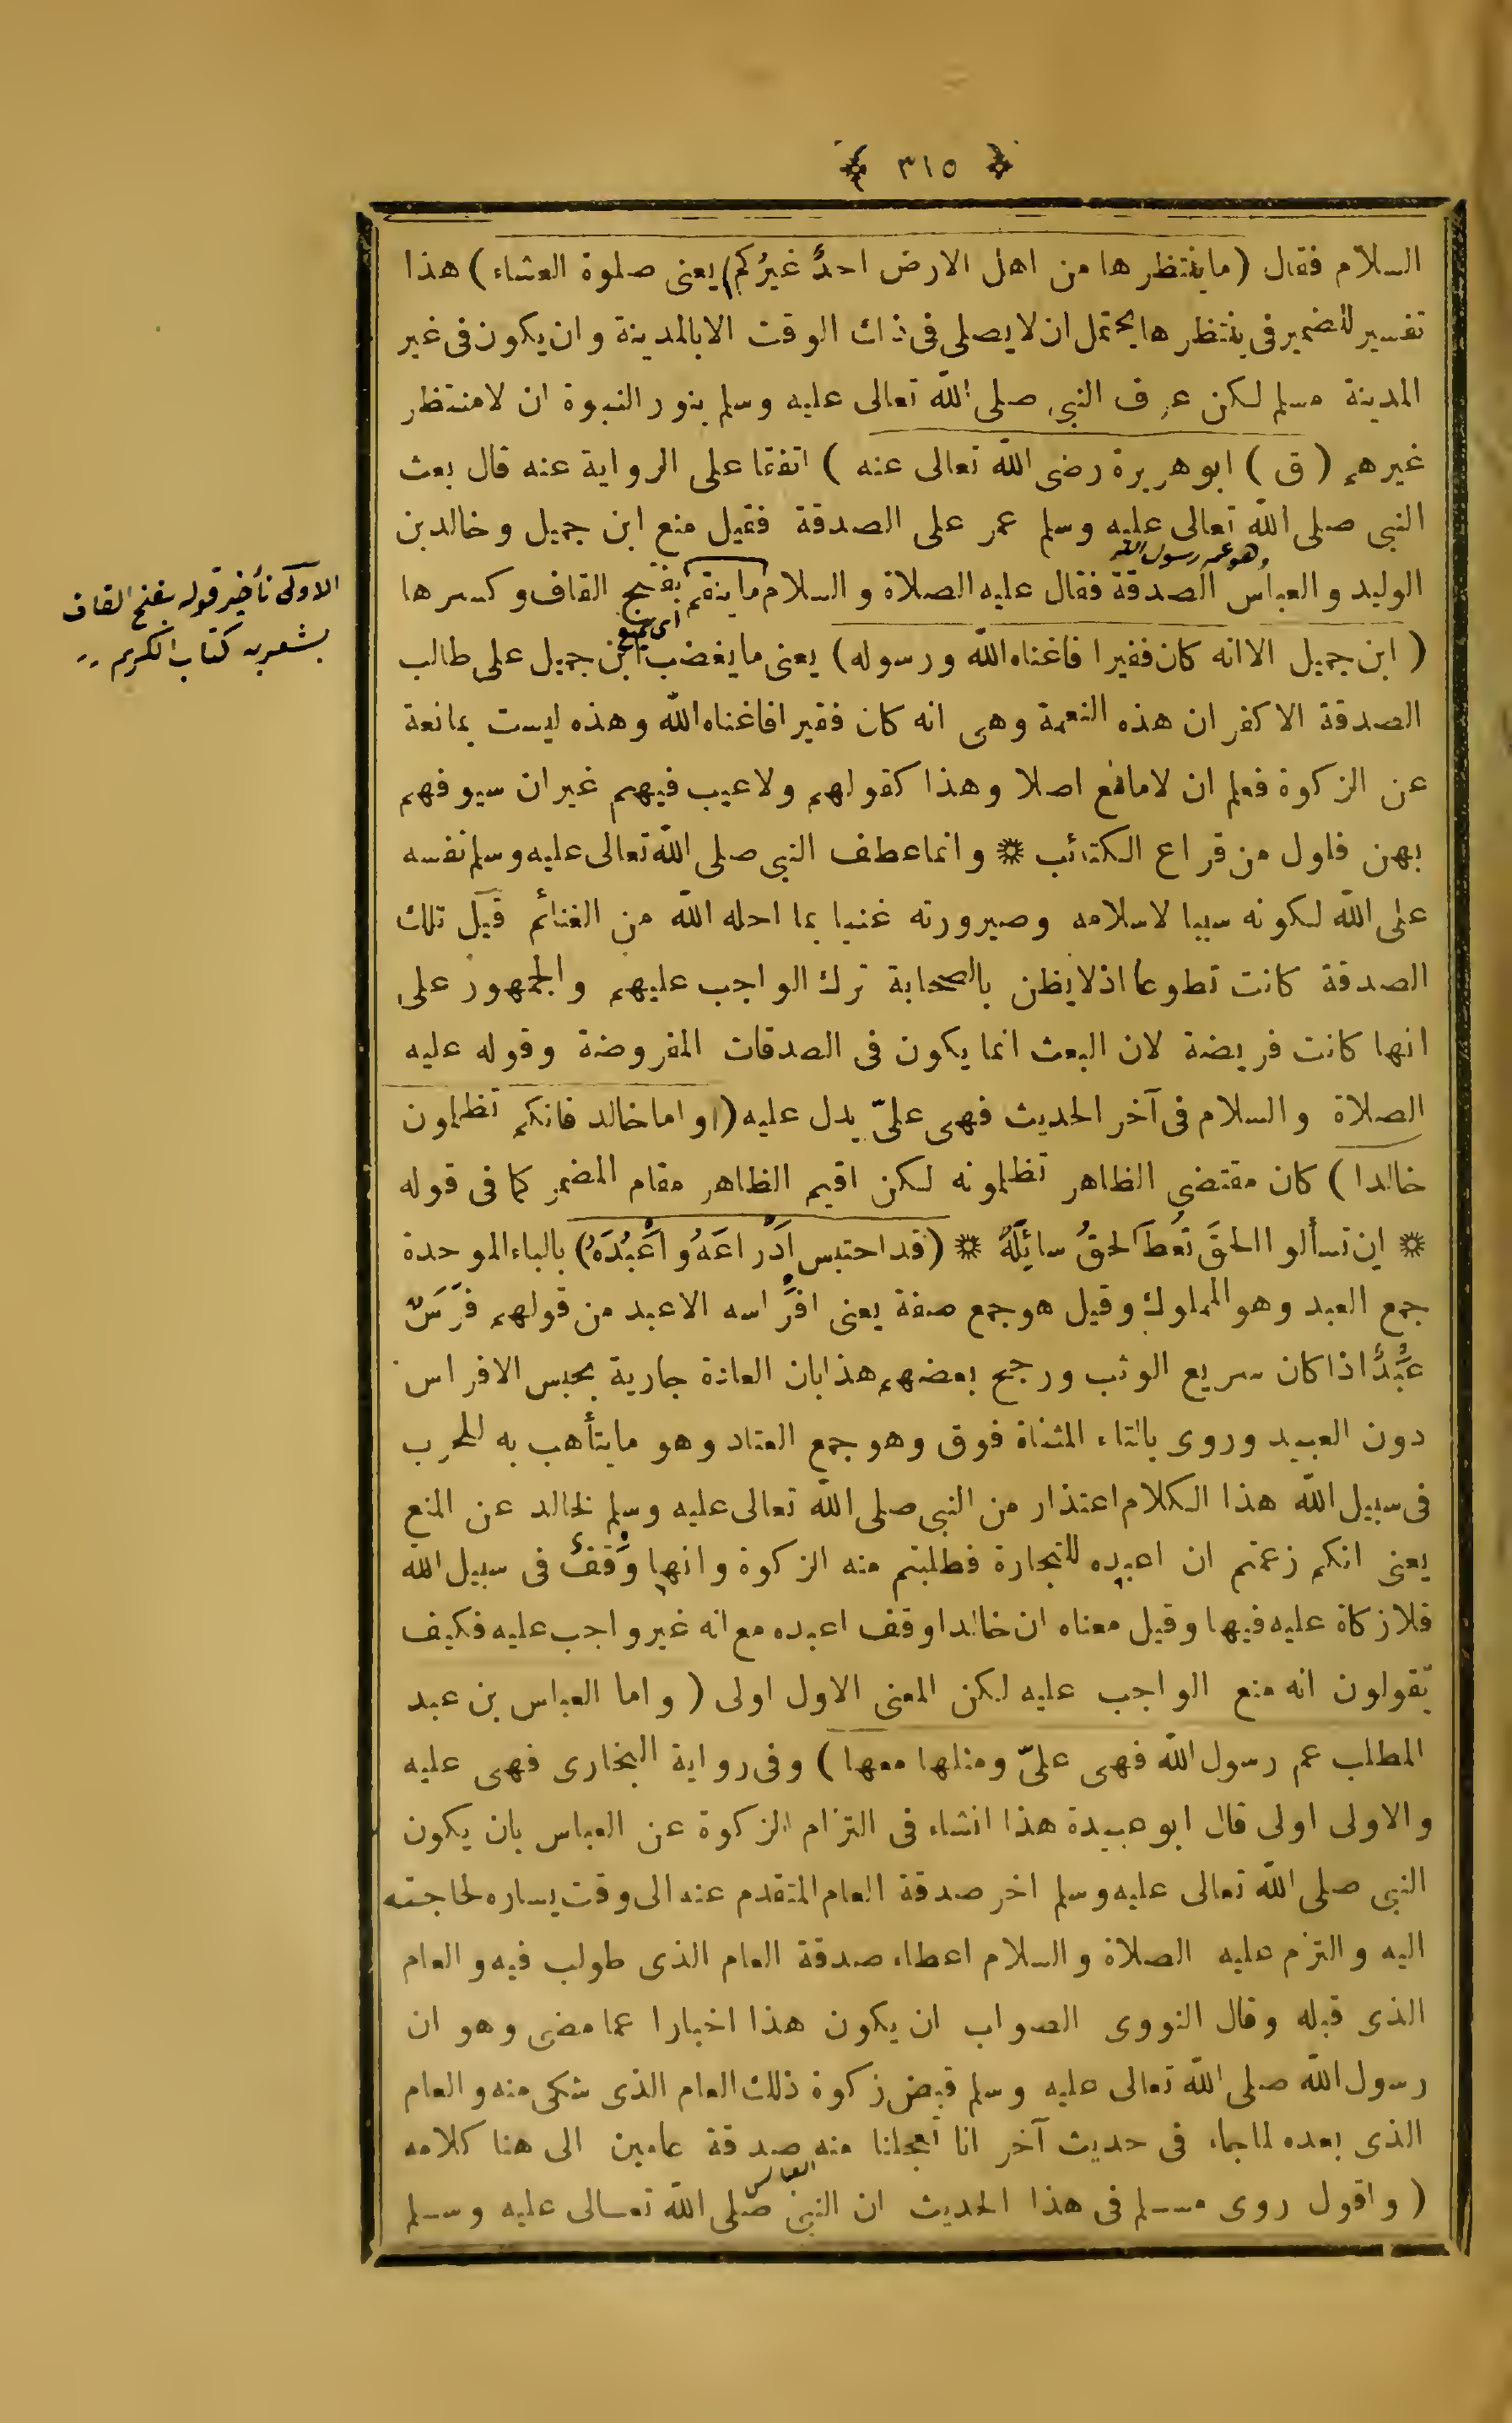 ﴿ ٣١٥ ﴾
السلام فقال ( ماينتظرها من اهل الارض احدٌ غيرُكم ) يعنى صلوة العشاء ) هذا
تفسير للضمير فى ينتظرها يحتمل ان لا يصلى فى ذلك الوقت الا بالمدينة وان يكون فى غير
المدينة مسلم لكن عرف النبى صلى الله تعالى عليه وسلم بنور النبوة ان لا منتظر
غيرهم ( ق ) ابوهريرة رضى الله تعالى عنه ) اتفقا على الرواية عنه قال بعث
النبى صلى الله تعالى عليه وسلم عمر على الصدقة فقيل منع ابن جميل وخالدبن
وهو عم رسول الله
الوليد والعباس الصدقة فقال عليه الصلاة والسلام ماينقم بفتح القاف وكسرها
الاولى تأخير قوله بفتح القاف
اى يمنع
( ابن جميل الا انه كان فقيرا فاغناه الله ورسوله ) يعنى مايغضب ابن جميل على طالب
الصدقة الا كفران هذه النعمة وهى انه كان فقيرا فاغناه الله وهذه ليست بمانعة
عن الزكوة فعلم ان لامانع اصلا وهذا كقولهم ولاعيب فيهم غير ان سيوفهم
بهن فلول من قراع الكتائب * وانما عطف النبى صلى الله تعالى عليه وسلم نفسه
على الله لكونه سببا لاسلامه وصيرورته غنيا بما احله الله من الغنائم قيل تلك
الصدقة كانت تطوعا اذ لايظن بالصحابة ترك الواجب عليهم والجمهور على
انها كانت فريضة لان البعث انما يكون فى الصدقات المفروضة وقوله عليه
الصلاة والسلام فى آخر الحديث فهى علىّ يدل عليه ( واما خالد فانكم تظلمون
خالدا ) كان مقتضى الظاهر تظلمونه لكن اقيم الظاهر مقام المضمر كما فى قوله
* ان تسألوا الحقَ نعط الحقُ سائِلَهُ * ( قد احتبس اَدْراعَهُ واَعْبُدَهُ ) بالباء الموحدة
جمع العبد وهو المملوك وقيل هو جمع صفة يعنى افراسه الاعبد من قولهم فرَسٌ
عبُدٌ اذا كان سريع الوثب ورجح بعضهم هذا بان العادة جارية بحبس الافراس
دون العبيد وروى بالتاء المثناة فوق وهو جمع العتاد وهو مايتأهب به للحرب
فى سبيل الله هذا الكلام اعتذار من النبى صلى الله تعالى عليه وسلم لخالد عن المنع
يعنى انكم زعمتم ان اعبده للتجارة فطلبتم منه الزكوة وانها وَقْفٌ فى سبيل الله
فلا زكاة عليه فيها وقيل معناه ان خالدا وقف اعبده مع انه غير واجب عليه فكيف
تقولون انه منع الواجب عليه لكن المعنى الاول اولى ( واما العباس بن عبد
المطلب عم رسول الله فهى علىّ ومثلها معها ) وفى رواية البخارى فهى عليه
والاولى اولى قال ابو عبيدة هذا انشاء فى التزام الزكوة عن العباس بان يكون
النبى صلى الله تعالى عليه وسلم اخر صدقة العام المتقدم عنه الى وقت يساره لحاجته
اليه والتزم عليه الصلاة والسلام اعطاء صدقة العام الذى طولب فيه والعام
الذى قبله وقال النووى الصواب ان يكون هذا اخبارا عما مضى وهو ان
رسول الله صلى الله تعالى عليه وسلم قبض زكوة ذلك العام الذى شكى منه والعام
الذى بعده لما جاء فى حديث آخر انا تعجلنا منه صدقة عامين الى هنا كلامه
العباس
( واقول روى مسلم فى هذا الحديث ان النبى صلى الله تعالى عليه وسلم